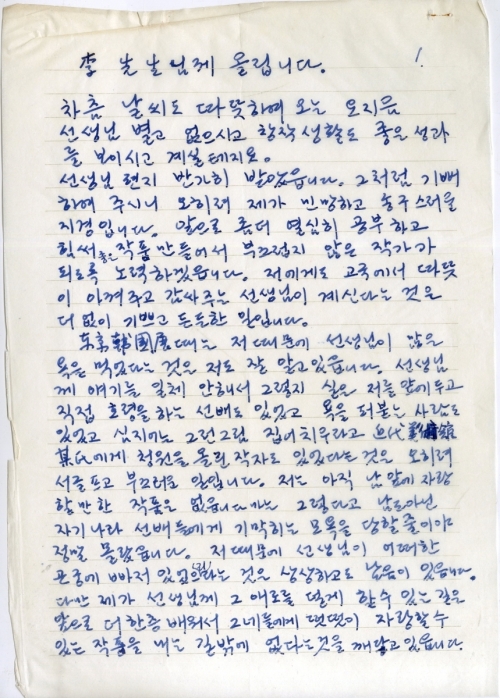 李 先生님께 올립니다.
1.
차츰 날씨도 따뜻하여 오는 요지음
선생님 별고 없으시고 창작생활도 좋은 성과
를 보이시고 계실테지요.
선생님 편지 반가히 받았읍니다. 그처럼 기뻐
하여 주시니 오히려 제가 민망하고 송구스러울
지경입니다. 앞으로 좀더 열심히 공부하고
힘써 좋은 작품 만들어서 부끄럽지 않은 작가가
되도록 노력하겠읍니다. 저에게도 고국에서 따뜻
이 아껴주고 감싸주는 선생님이 계신다는 것은
더 없이 기쁘고 든든한 일입니다.
东京韓國展 때는 저 때문에 선생님이 많은
욕을 먹었다는 것은 저도 잘 알고 있읍니다. 선생님
께 얘기는 일체 안해서 그렇지 실은 저를 앞에 두고
직접 호령을 하는 선배도 있었고 욕을 퍼붓는 사람도
있었고 심지어는 그런그림 집어치우라고 近代
某氏에게 청원을 올린 작자도 있었다는 것은 오히려
서글프고 부끄러운 일입니다. 저는 아직 남 앞에 자랑
할 만한 작품은 없읍니다마는 그렇다고 남도아닌
자기나라 선배들에게 기막히는 모욕을 당할 줄이야
정말 몰랐읍니다. 저 때문에 선생님이 어떠한
곤궁에 빠저 있었으리라는 것은 상상하고도 남음이 있읍니다.
다만 제가 선생님께 그 애로를 덜게 할 수 있는 길은
앞으로 더 한층 배워서 그네들에게 떳떳이 자랑할 수
있는 작품을 내는 길밖에 없다는 것을 깨닫고 있읍니다.